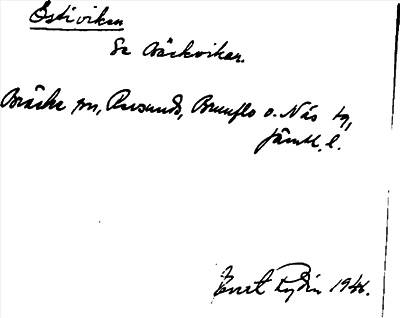 Östiviken
Se Bäckviken.
Bräcke sn, Revsunds, Brunflo o. Näs tg,
Jämtl. l.
Rydin 1946.